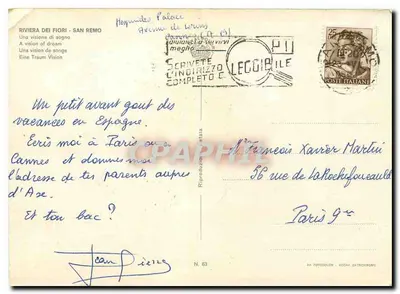 RIVIERA DEI FIORI - SAN REMO
Una visione di sogno
A vision of dream
Une vision de songe
Eine Traum Vision
Palace
Avenue de
SCRIVETE
L'INDIRIZZO
COMPLETO E
LEGGIBILE
POSTE ITALIANE
Un petit avant gout des
vacances en Espagne.
Ecris moi à Paris ou
Cannes et donnes moi
l'adresse de tes parents aupres
d'Aix.
Et ton bac?
Jean Pierre
Mr Francois Xavier Martin
56 rue de La Rochefoucauld
Paris 9e
CPARHIL
N. 63